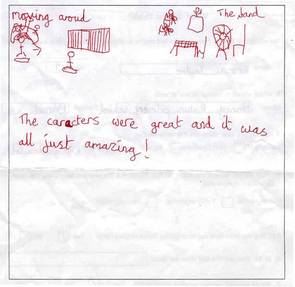 moving aroud
The band
The caracters were great and it was
all just amazing!